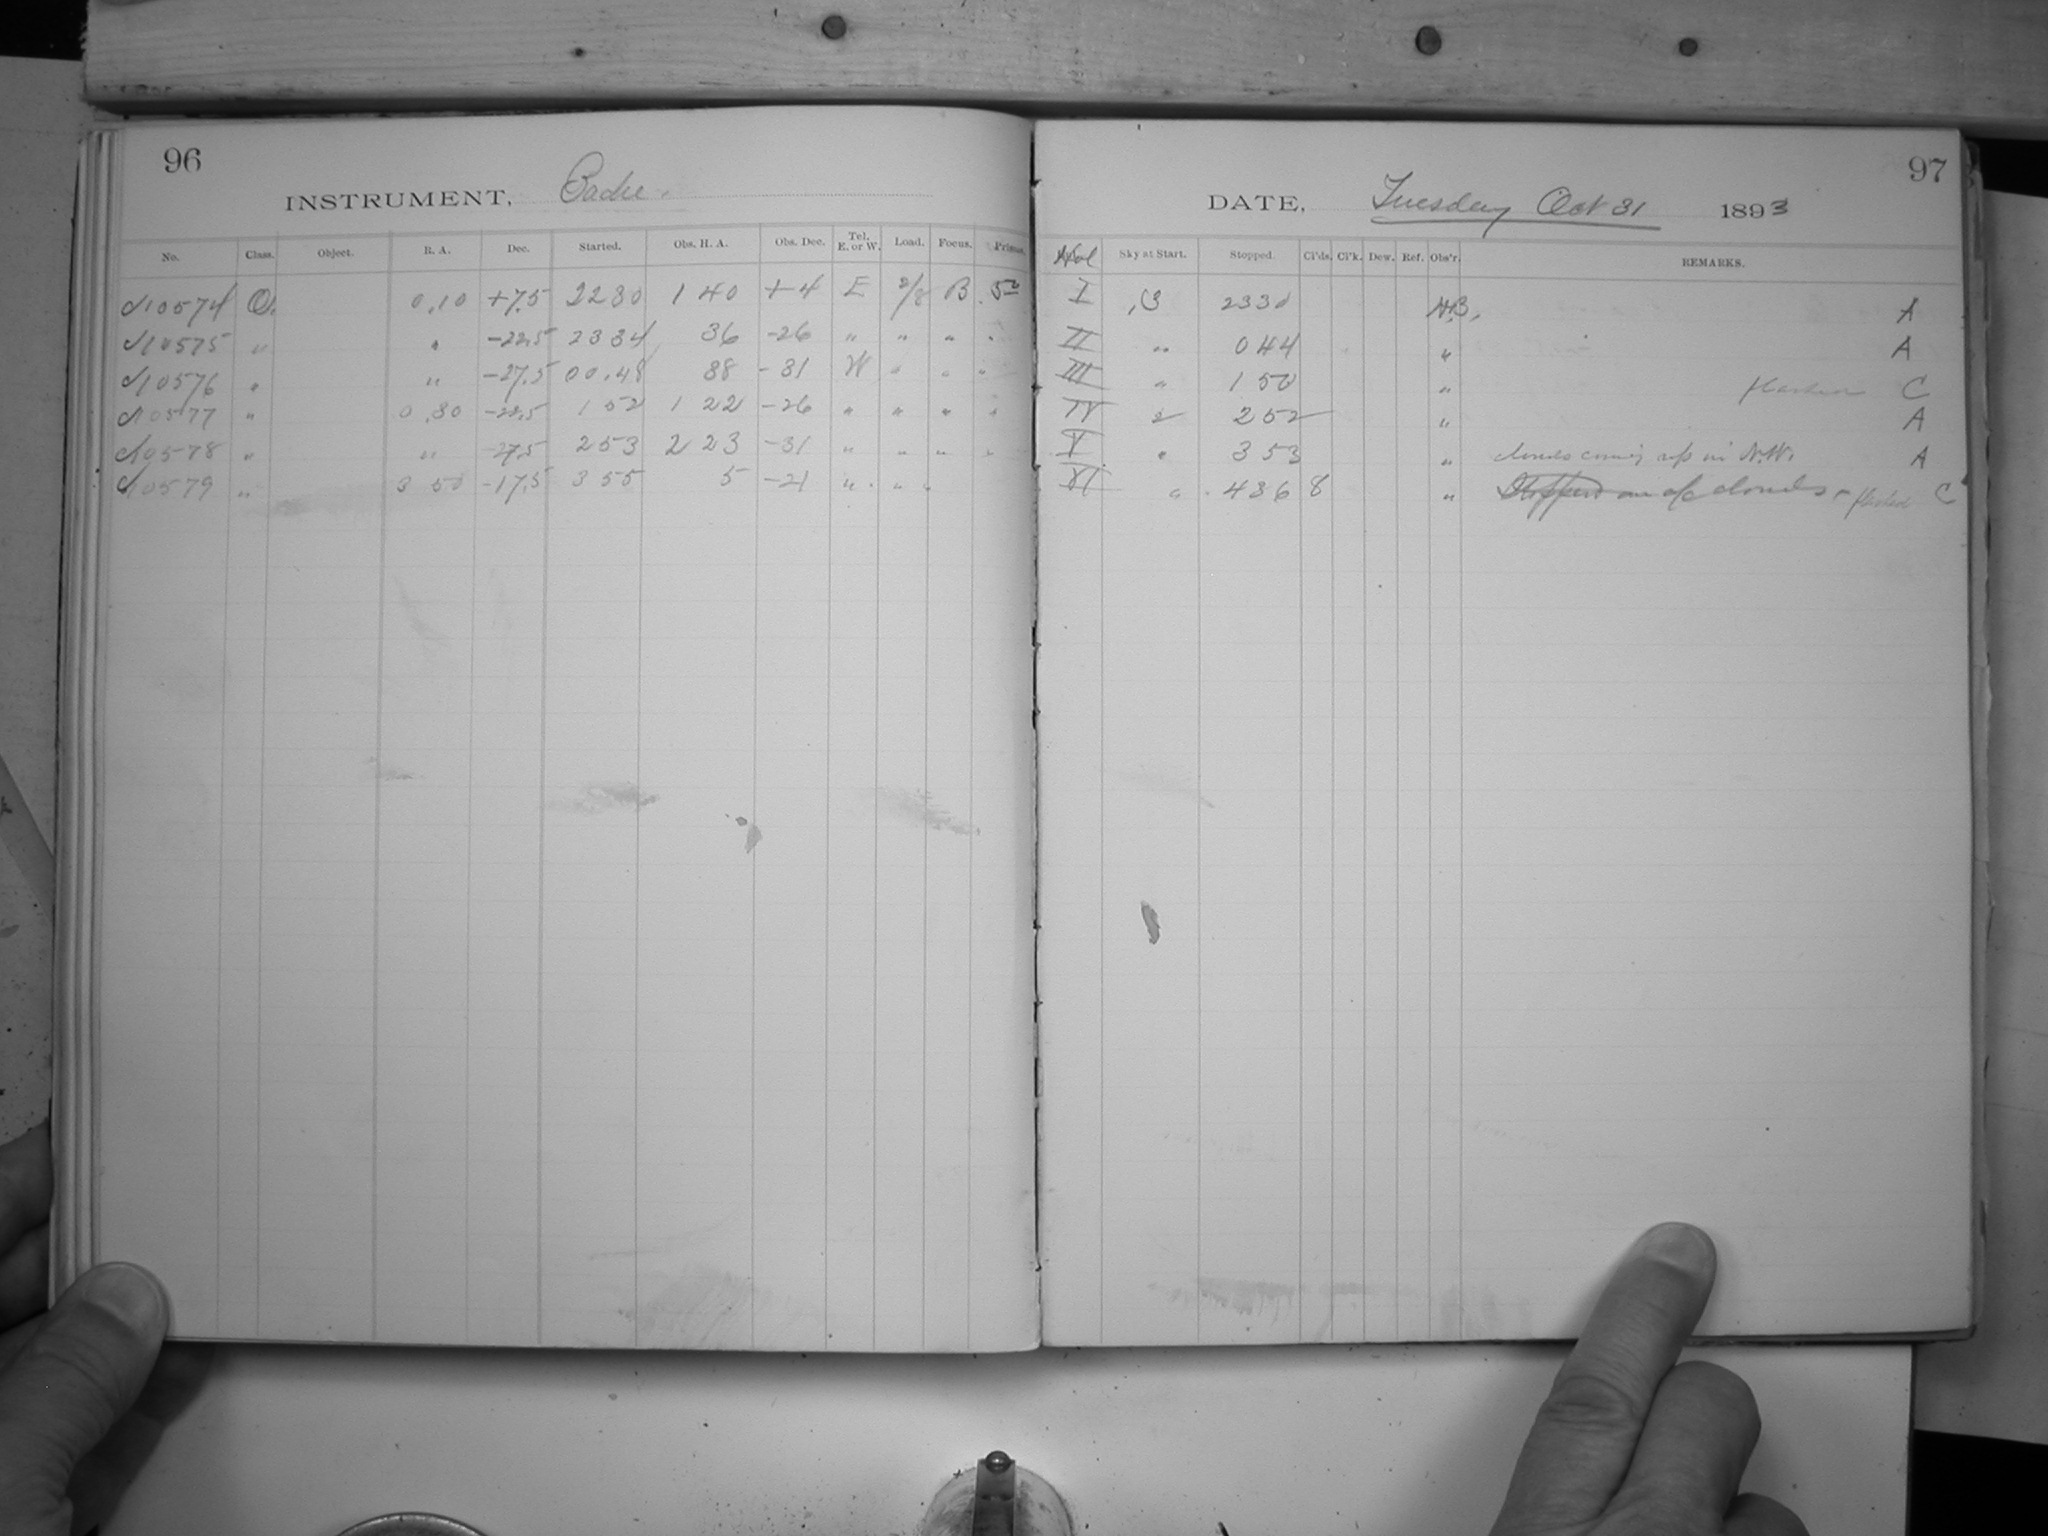 96
INSTRUMENT, Bache.
No. Class. Object. R. A. Dec. Started. Obs. H. A. Obs. Dec. Tel. E. or W. Load. Focus. Prisms.
10574 O. 0.10 +7.5 2230 1 40 +4 E 2/8 B .50
10575 " " -22.5 2334 36 -26 " " " "
10576 " " -27.5 00.48 38 -31 W " " "
10577 " 0.30 -22.5 1 52 1 22 -26 " " " "
10578 " " -27.5 2 53 2 23 -31 " " " "
10579 " 3 50 -17.5 3 55 5 -21 " " "
97
DATE, Tuesday Oct 31 1893
Sky at Start. Stopped. Cl'ds. Cl'k. Dew. Ref. Obs'r. REMARKS.
I 233 A
II " 0 44 " A
III " 1 50 " C
IV 2 2 52 " A
V " 3 53 " clouds coming up in N.W. A
VI " 4 36 8 " Stopped on a/c clouds - flashed C